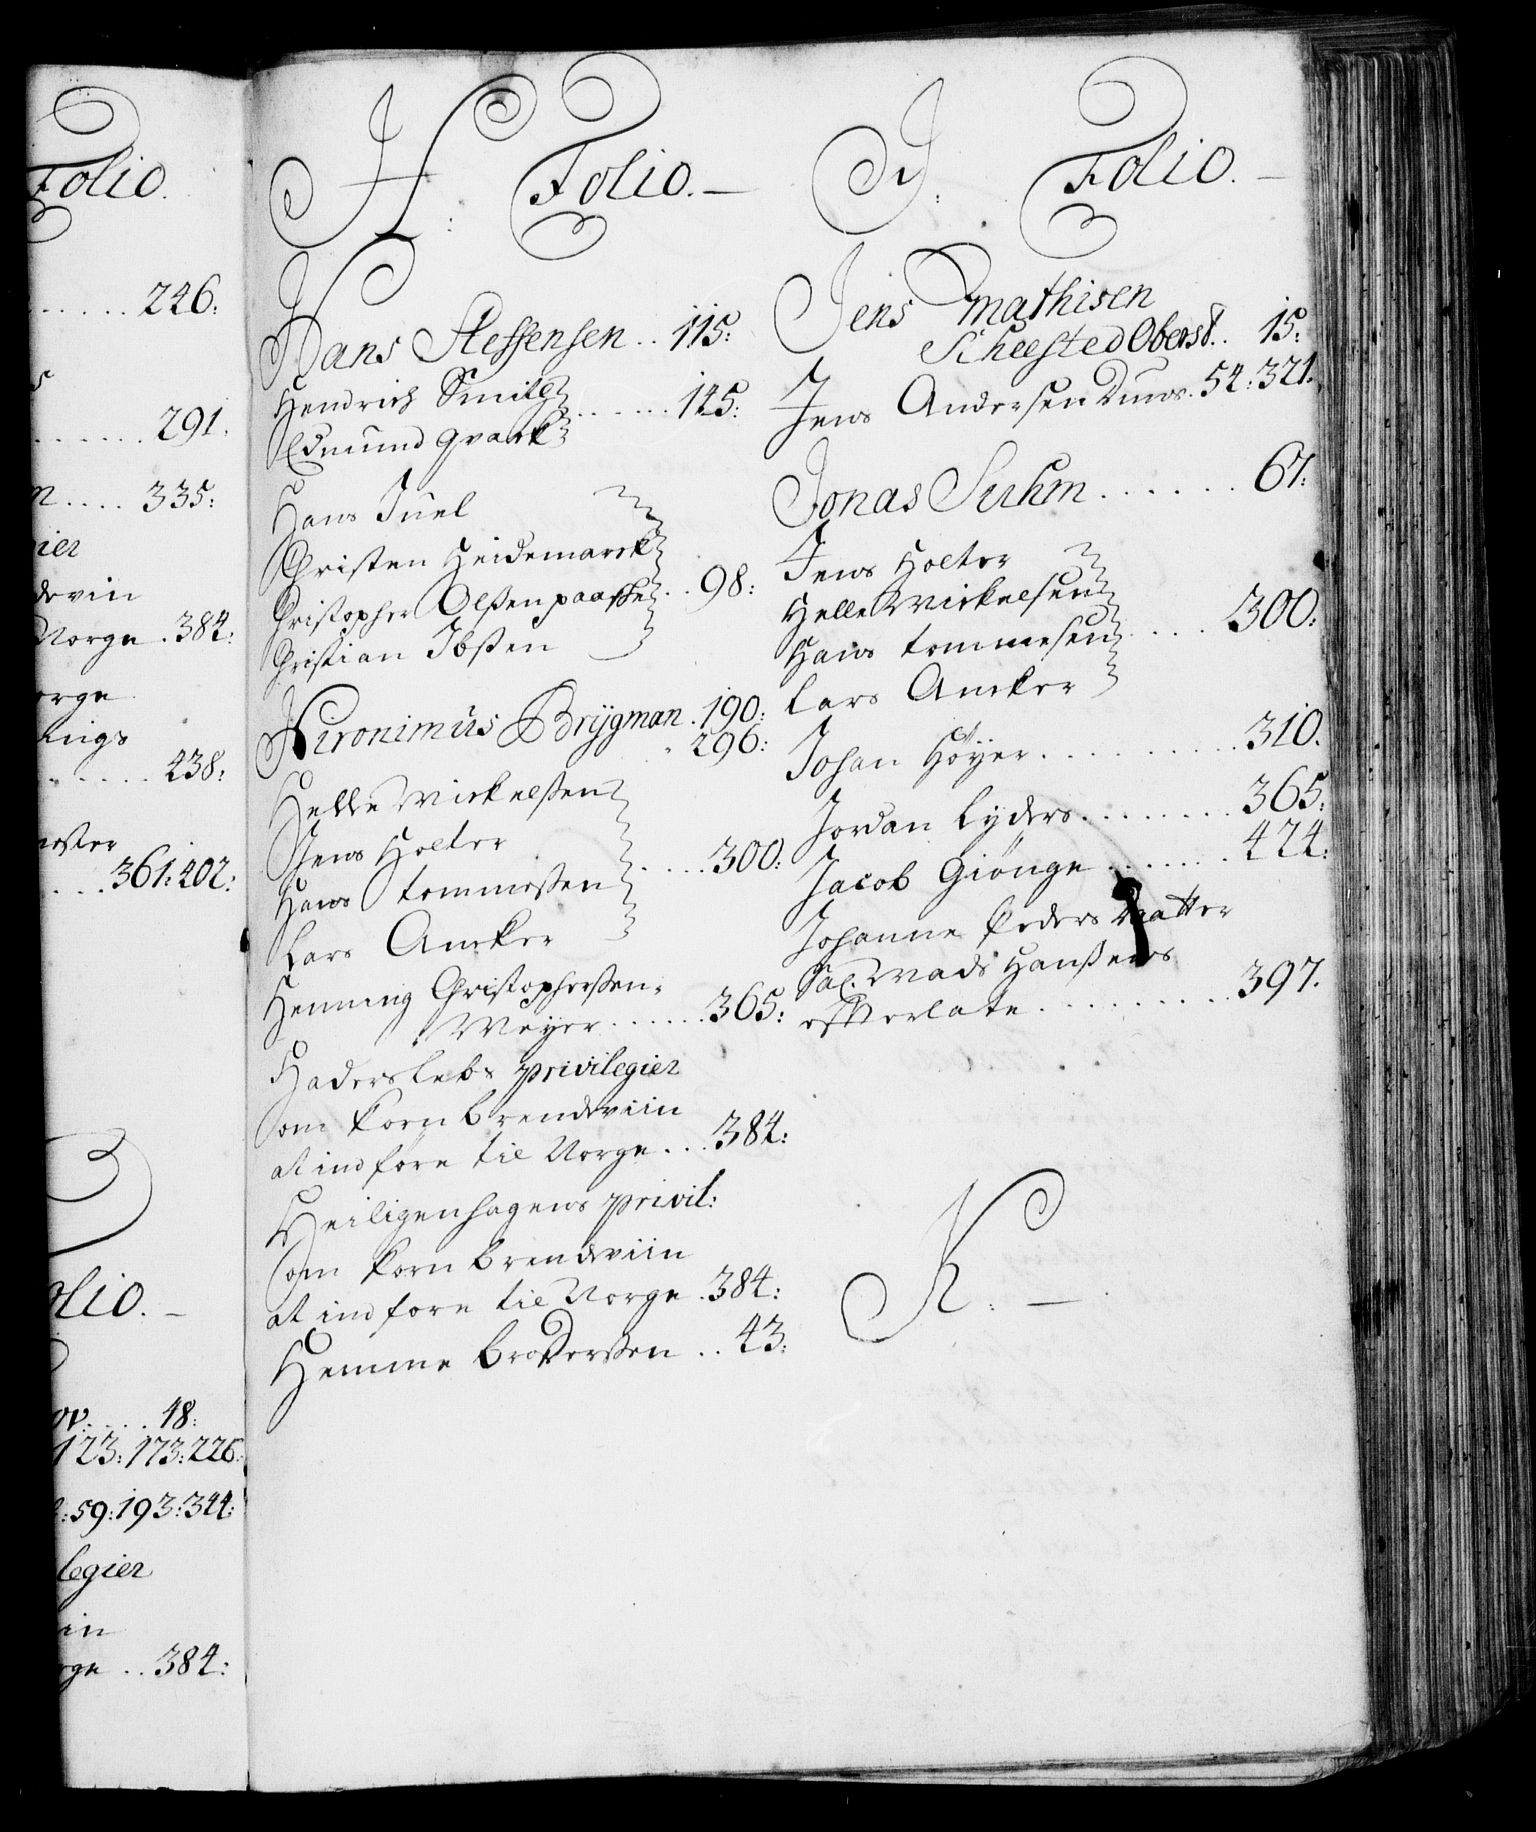 Folio.
246:
291.
335:
Norge . 384:
438:
361:402:
Folio.
48:
123:173:226:
59:193:344:
384:
H: Folio.
Hans Steffensen .. 115:
Hendrich Smith
Edmund Qvark ....... 145:
Hans Juel
Christen Heidemarck
Christopher Olßen paaske .. 98:
Christian Ibßen
Hironimus Brÿgman . 190:
296:
Helle Mickelßen
Jens Holter
Hans tommeßen ..... 300:
Lars Ancker
Henning Christopherßen
Meyer ...... 365:
Haderslebs privilegier
om korn brendeviin
at indføre til Norge ... 384:
Heiligenhagens privil:
om korn brendeviin
at indføre til Norge . 384:
Hemme broderßen .. 43:
J. Folio.
Jens Mathisen
Scheested Oberst .. 15:
Jens Andersen 54:321.
Jonas Suhm ...... 67:
Jens Holter
Helle Mickelsen
Hans tommesen .... 300:
Lars Ancker
Johan Höÿer .......... 310.
Jordan Lyders ........ 365:
Jacob Giönge ....... 424:
Johanne Peders datter
Sal. Mads Hanßens
efterlate ......... 397.
K.